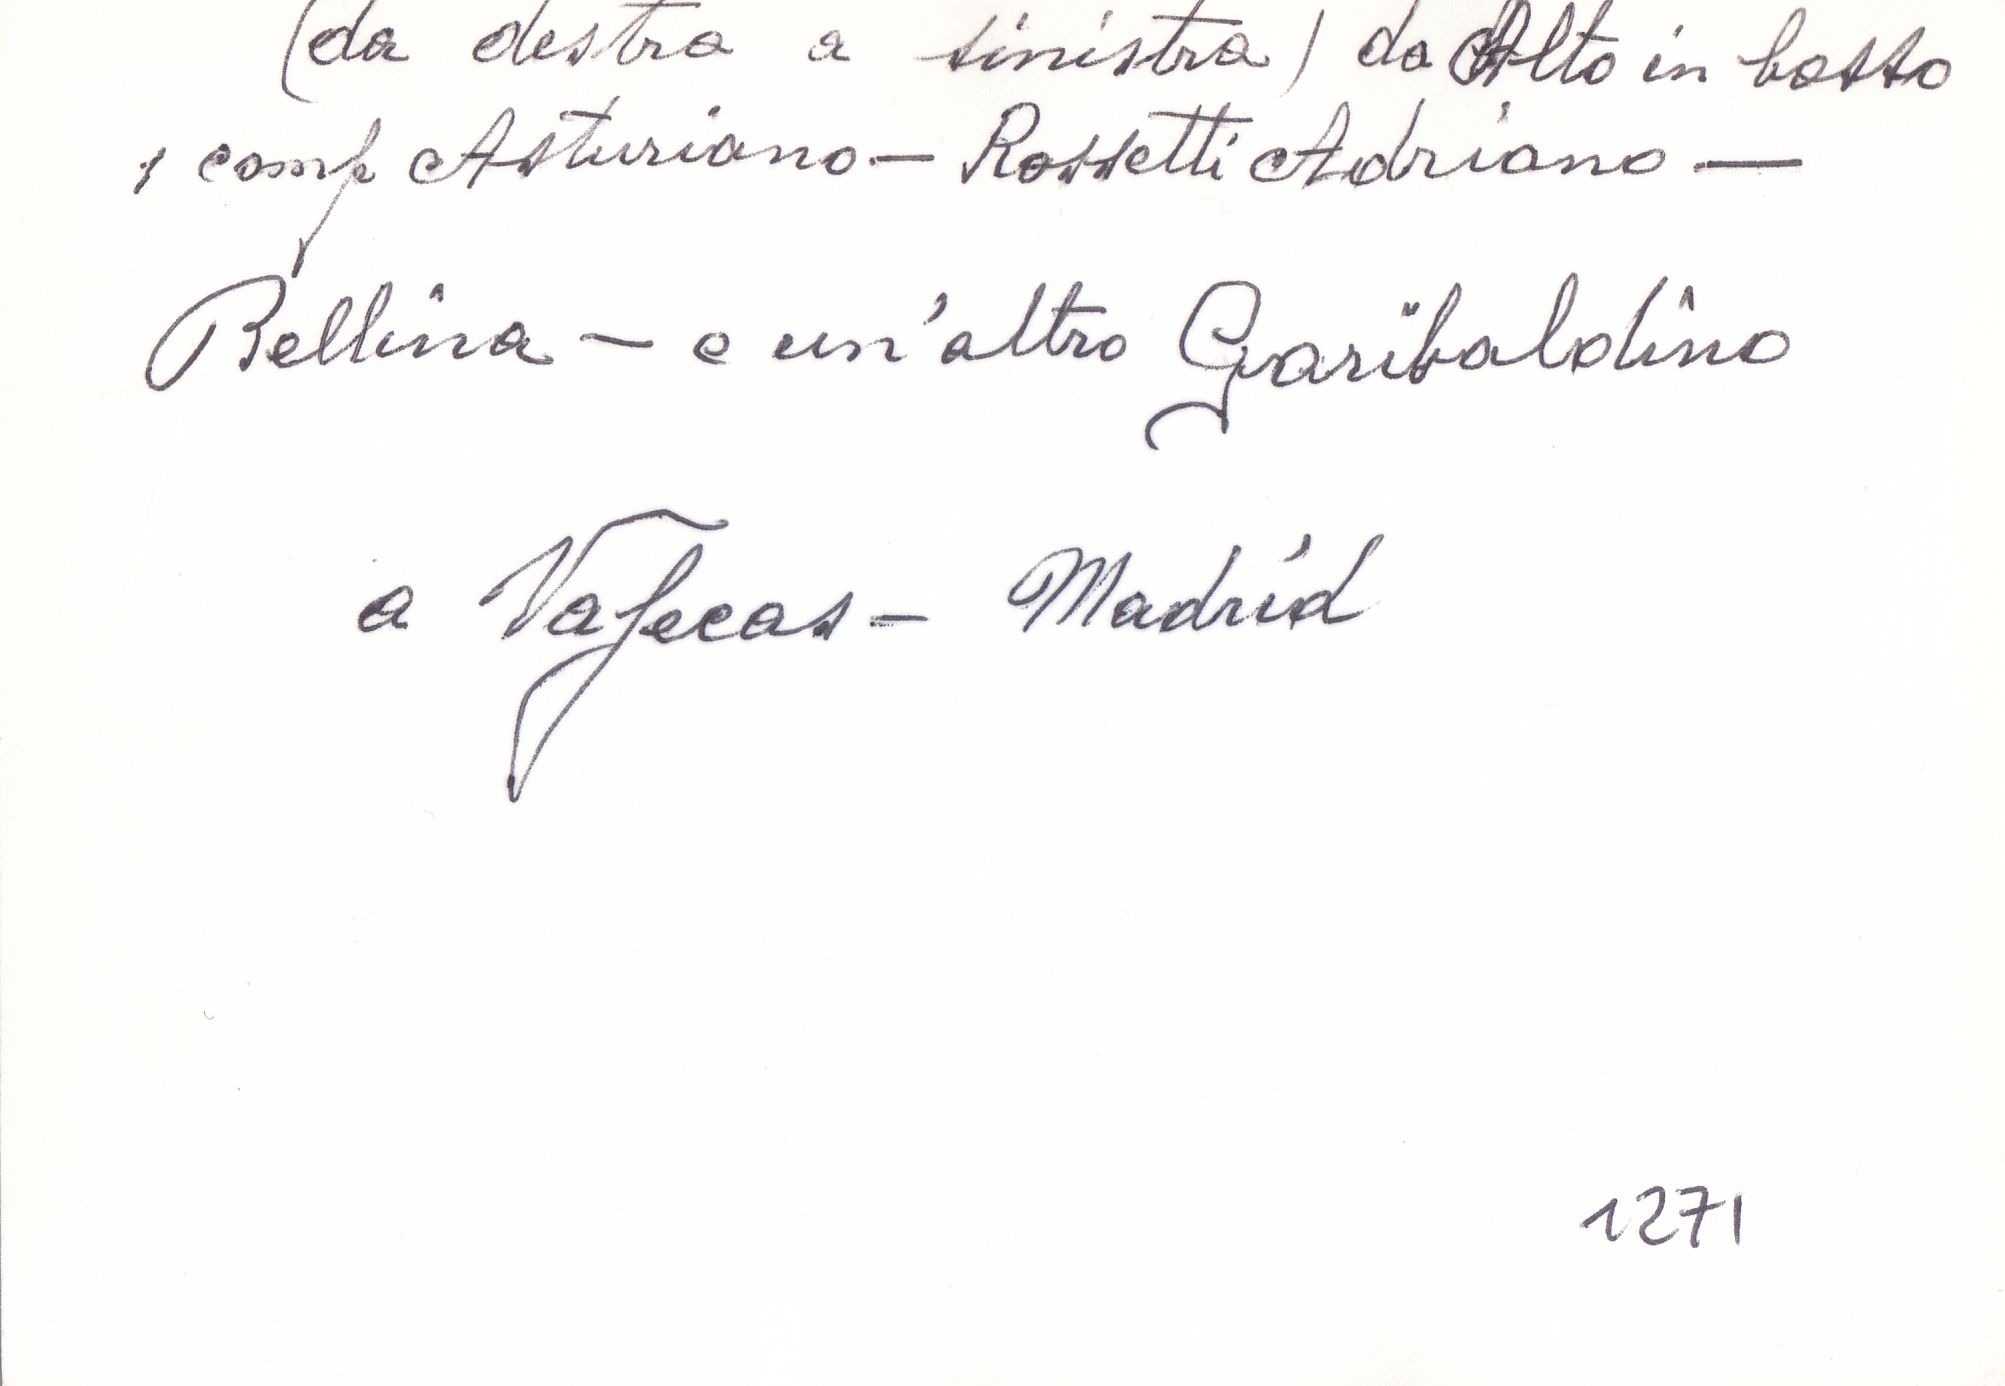 (da destra a sinistra) da Alto in basso
1 comp Asturiano — Rossetti Adriano —
Bellina — e un'altro Garibaldino
a Vajecas — Madrid
1271